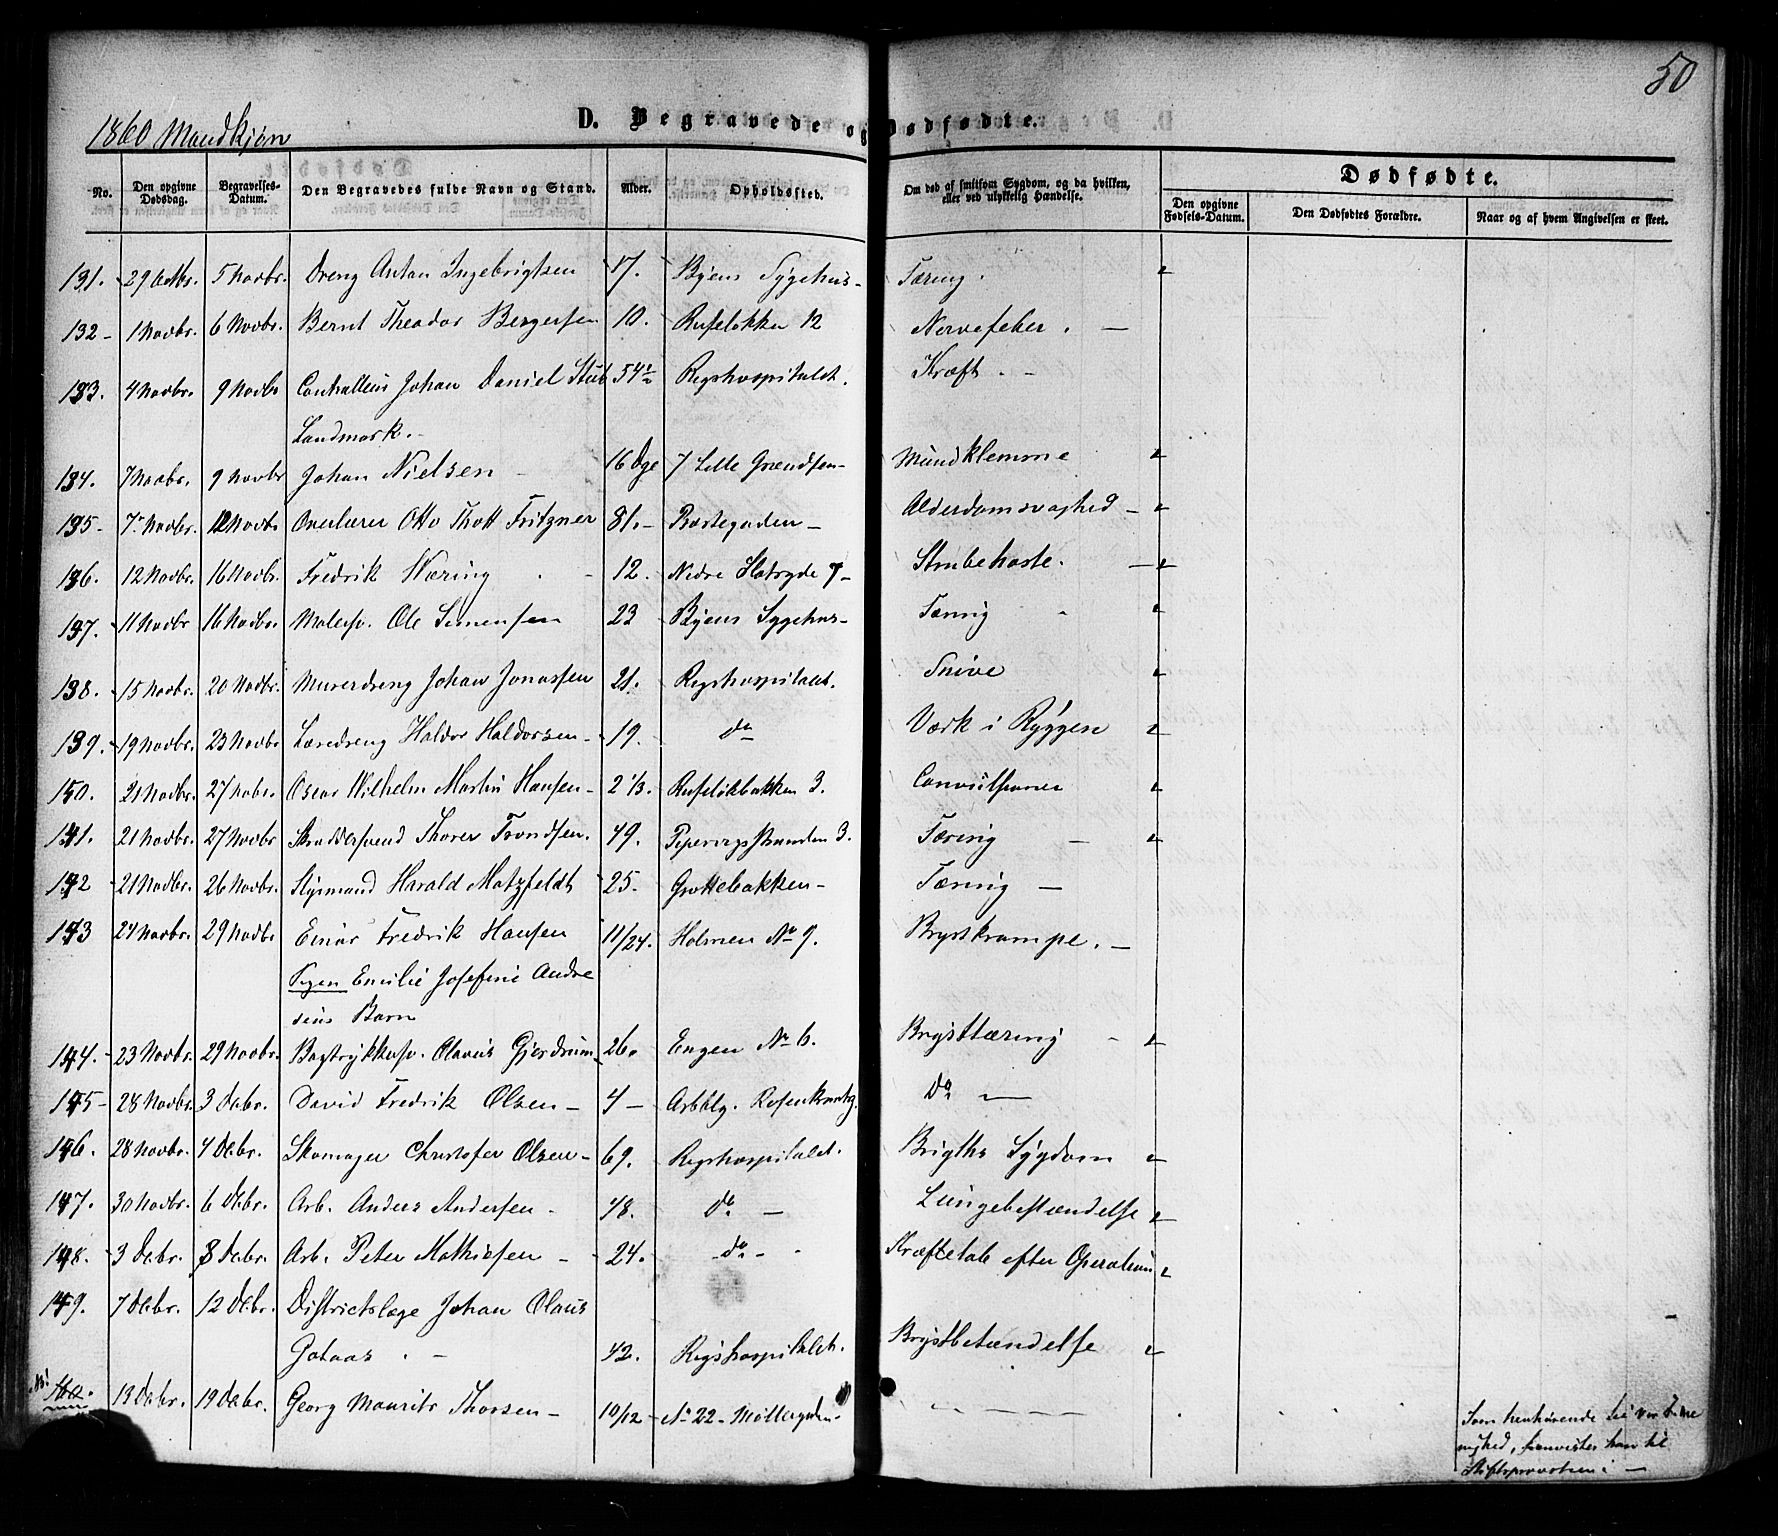 50
1860 Mandkjøn
D. Begravede og Dødfødte.
No. Den opgivne Dødsdag. Begravelses-Datum. Den Begravedes fulde Navn og Stand. Alder. Opholdssted. Om død af smitsom Sygdom, og da hvilken, eller ved ulykkelig Hændelse.
Dødfødte.
Den opgivne Fødsels-Datum. Den Dødfødtes Forældre. Naar og af hvem Angivelsen er skeet.
131. 29 Octbr. 5 Novbr. Dreng Anton Ingebrigtsen 17. Byens Sygehus- Tæring.
132- 1 Novbr. 6 Novbr. Bernt Theodor Bergersen 10. Rufeløkken 12 Nervefeber. —
133. 4 Novbr. 9 Novbr Johan Daniel Stub 54½ Rigshospitalet. Kræft. -
Landmark.-
134. 7 Novbr. 9 Novbr Johan Nielsen - 16 Dge 7 Lille Grændsen- Mundklemme
135- 7- Novbr. 12 Novbr Overlærer Otto Thott Fritzner 81.- Præstegaden- Alderdomsvaghed -
136. 12 Novbr. 16 Novbr. Fredrik Næring . - 12. Nedre Slotsgde 7- Strubehoste. —
137. 11 Novbr 16 Novbr. Malersv. Ole Simensen 23 Byens Sygehus- Tæring
138. 15 Novbr. 20 Novbr. Murerdreng Johan Jonassen 21. Rigshospitalet. Snive
139. 19 Novbr. 23 Novbr Læredreng Haldor Haldorsen- 19. do Værk i Ryggen
150. 21 Novbr. 27 Nobr. Oscar Wilhelm Martin Hansen- 2 1/3. Rufeløkbakken 3. Convultioner
141. 21 Novbr. 27 Novbr Skræddersvend Thorer Trondsen. 49. Pipervigsstranden 3. Tæring —
142 21 Novbr. 26 Novbr. Styrmand Harald Motzfeldt 25. Grottebakken- Tæring —
143 24 Novbr. 29 Novbr Einar Fredrik Hansen 11/24. Holmen No 9. Brystkrampe. —
Pigen Emilie Josefine Andre
sens Barn
144.- 23 Novbr. 29 Novbr. Bogtrykkersv. Olavus Gjerdrum 26. Engen No 6. Brysttæring -
145- 28 Novbr. 3 Debr. David Fredrik Olsen- 4 - Arbblg. Rosenkrantzg. Do —
146. 28 Novbr. 4 Debr. Skomager Christofer Olsen- 69. Rigshospitalet. Brigths Sygdom
147. 30 Novbr. 6 Debr. Arb. Anders Andersen - 48. do — Lungebetændelse
148. 3 Debr. 8 Debr. Arb. Peter Mathiesen - 24. -do- - Kræftetab efter Operation
149. 7 Debr. 12 Debr. Districtslæge Johan Olaus
Gotaas . - 42. Rigshospitalet. Brystbetændelse
13 Debr. 19 Debr. Georg Mauritz Thorsen- 10/12 No 22- Møllergden-
Som henhørende til vor Frue
nighed, henvistes han til
Stiftsprovsten. —